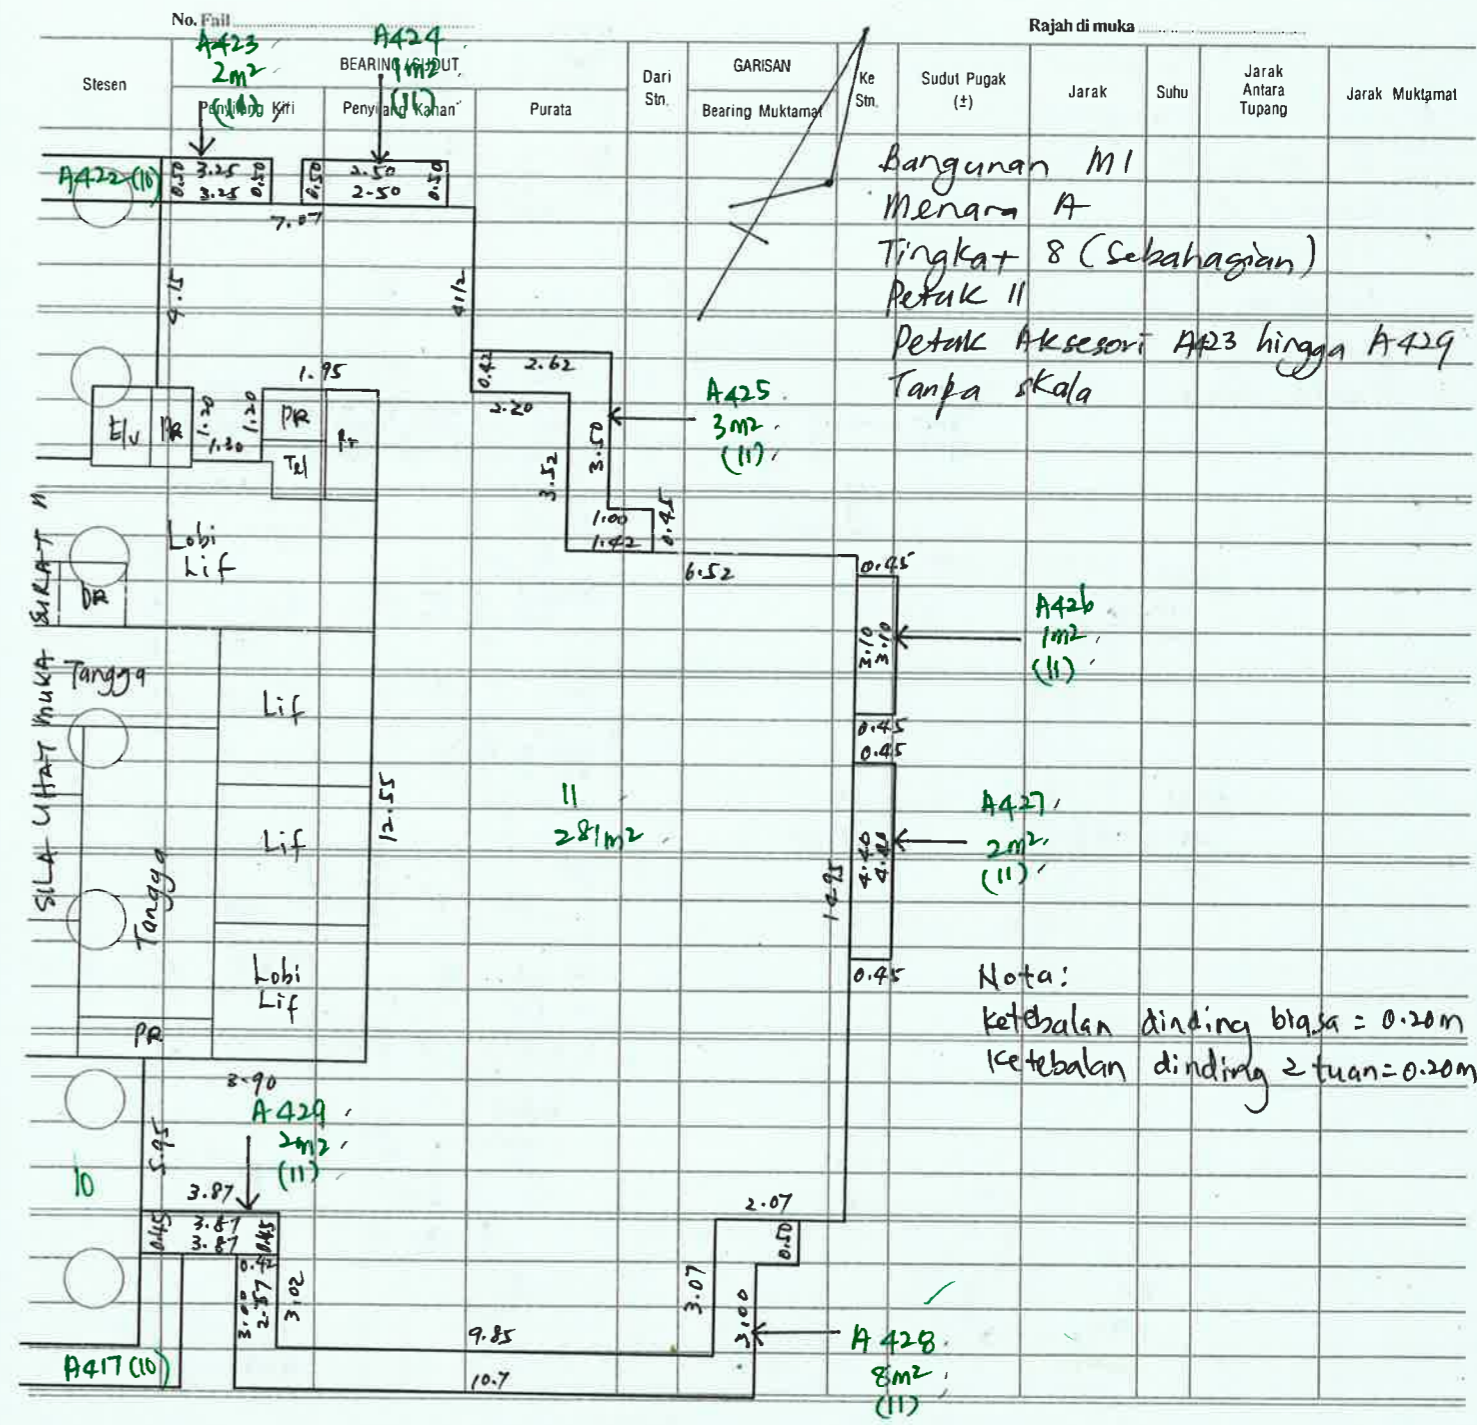 No. Fail
Rajah di muka
Stesen
BEARING/SUDUT
Penyilang Kiri
Penyilang Kanan
Purata
Dari
Stn.
GARISAN
Bearing Muktamat
Ke
Stn.
Sudut Pugak
(±)
Jarak
Suhu
Jarak
Antara
Tupang
Jarak Muktamat
A423
2m²
(11)
A424
1m²
(11)
A422 (10)
0.50
3.25
3.25
0.50
0.50
2.50
2.50
0.50
7.07
4.15
4.12
Bangunan M1
Menara A
Tingkat 8 (Sebahagian)
Petak 11
Petak Aksesori A423 hingga A429
Tanpa skala
1.95
0.42
2.62
2.20
A425
3m²
(11)
E/v
PR
1.20
1.30
1.20
PR
Tel
3.52
3.50
1.00
1.42
0.45
6.52
Lobi
Lif
DR
SILA LIHAT MUKA SURAT
Tangga
Lif
Lif
Tangga
Lobi
Lif
PR
12.55
11
281m²
0.45
3.10
3.10
0.45
A426
1m²
(11)
0.45
4.40
4.40
0.45
A427
2m²
(11)
14.95
Nota:
Ketebalan dinding biasa = 0.20m
Ketebalan dinding 2 tuan = 0.20m
3.90
A429
2m²
(11)
5.95
10
3.87
0.45
3.87
3.87
0.45
0.42
3.00
2.57
3.02
9.85
10.7
2.07
0.50
3.07
3.00
A428
8m²
(11)
A417 (10)